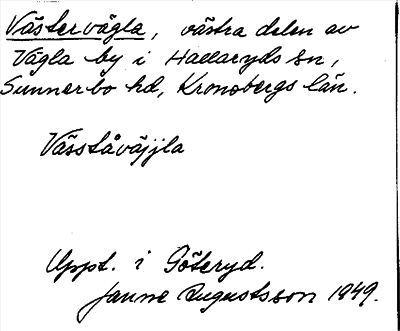 Västervägla, västra delen av
Vägla by i Hallaryds sn,
Sunnerbo hd, Kronobergs län.
Väsståväjjla
Uppt. i Göteryd.
Janne Augustsson 1949.